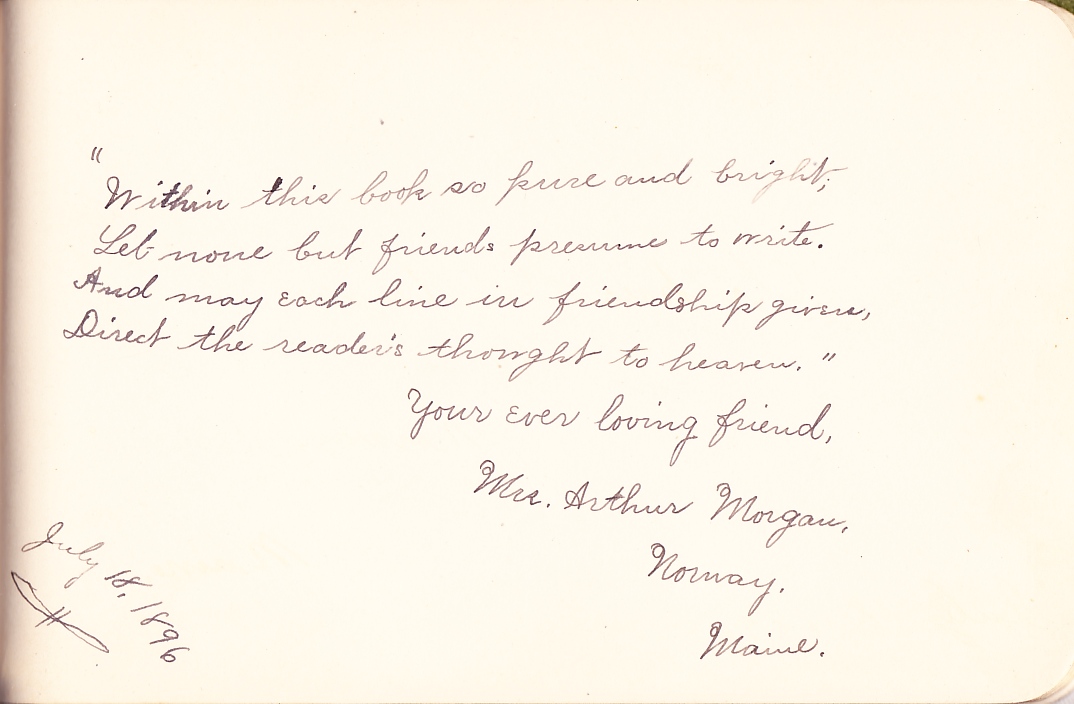 "
Within this book so pure and bright,
Let none but friends presume to write.
And may each line in friendship given,
Direct the reader's thought to heaven."
Your ever loving friend,
Mrs. Arthur Morgan,
Norway,
Maine.
July 18, 1896